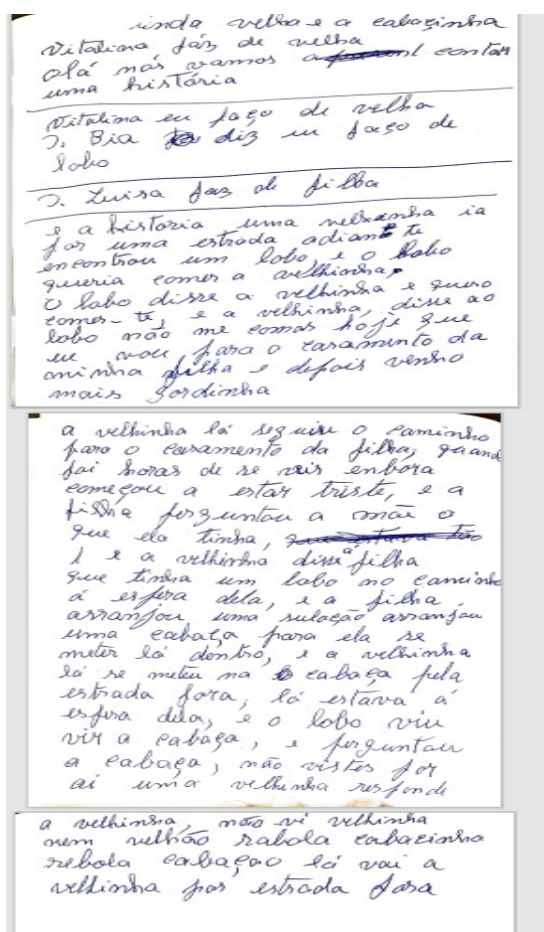 inda velha e a cabacinha
Vitalina fáz de velha
olá nós vamos contar
uma história
Vitalina eu faço de velha
D. Bia diz eu faço de
lobo
D. Luisa faz de filha
e a historia uma velhinha ia
por uma estrada adiante
encontrou um lobo, e o lobo
queria comer a velhinha,
O lobo disse a velhinha e quero
comer-te, e a velhinha, disse ao
lobo não me comas hoje que
eu vou para o casamento da
minha filha e depois venho
mais gordinha
a velhinha lá seguiu o caminho
para o casamento da filha, quand
foi horas de se enbora
começou a estar triste, e a
filha perguntou a mãe o
que ela tinha,
e a velhinha disse á filha
que tinha um lobo no caminho
á espera dela, e a filha
arranjou uma arranjou
uma cabaça para ela se
meter lá dentro, e a velhinha
lá se meteu na cabaça pela
estrada fora, lá estava á
espera dela, e o lobo viu
vir a cabaça, e perguntou
a cabaça, não vistes por
ai uma velhinha responde
a velhinha, não vi velhinha
nem velhão rabola cabacinha
rebola cabaçao lá vai a
velhinha por estrada fora